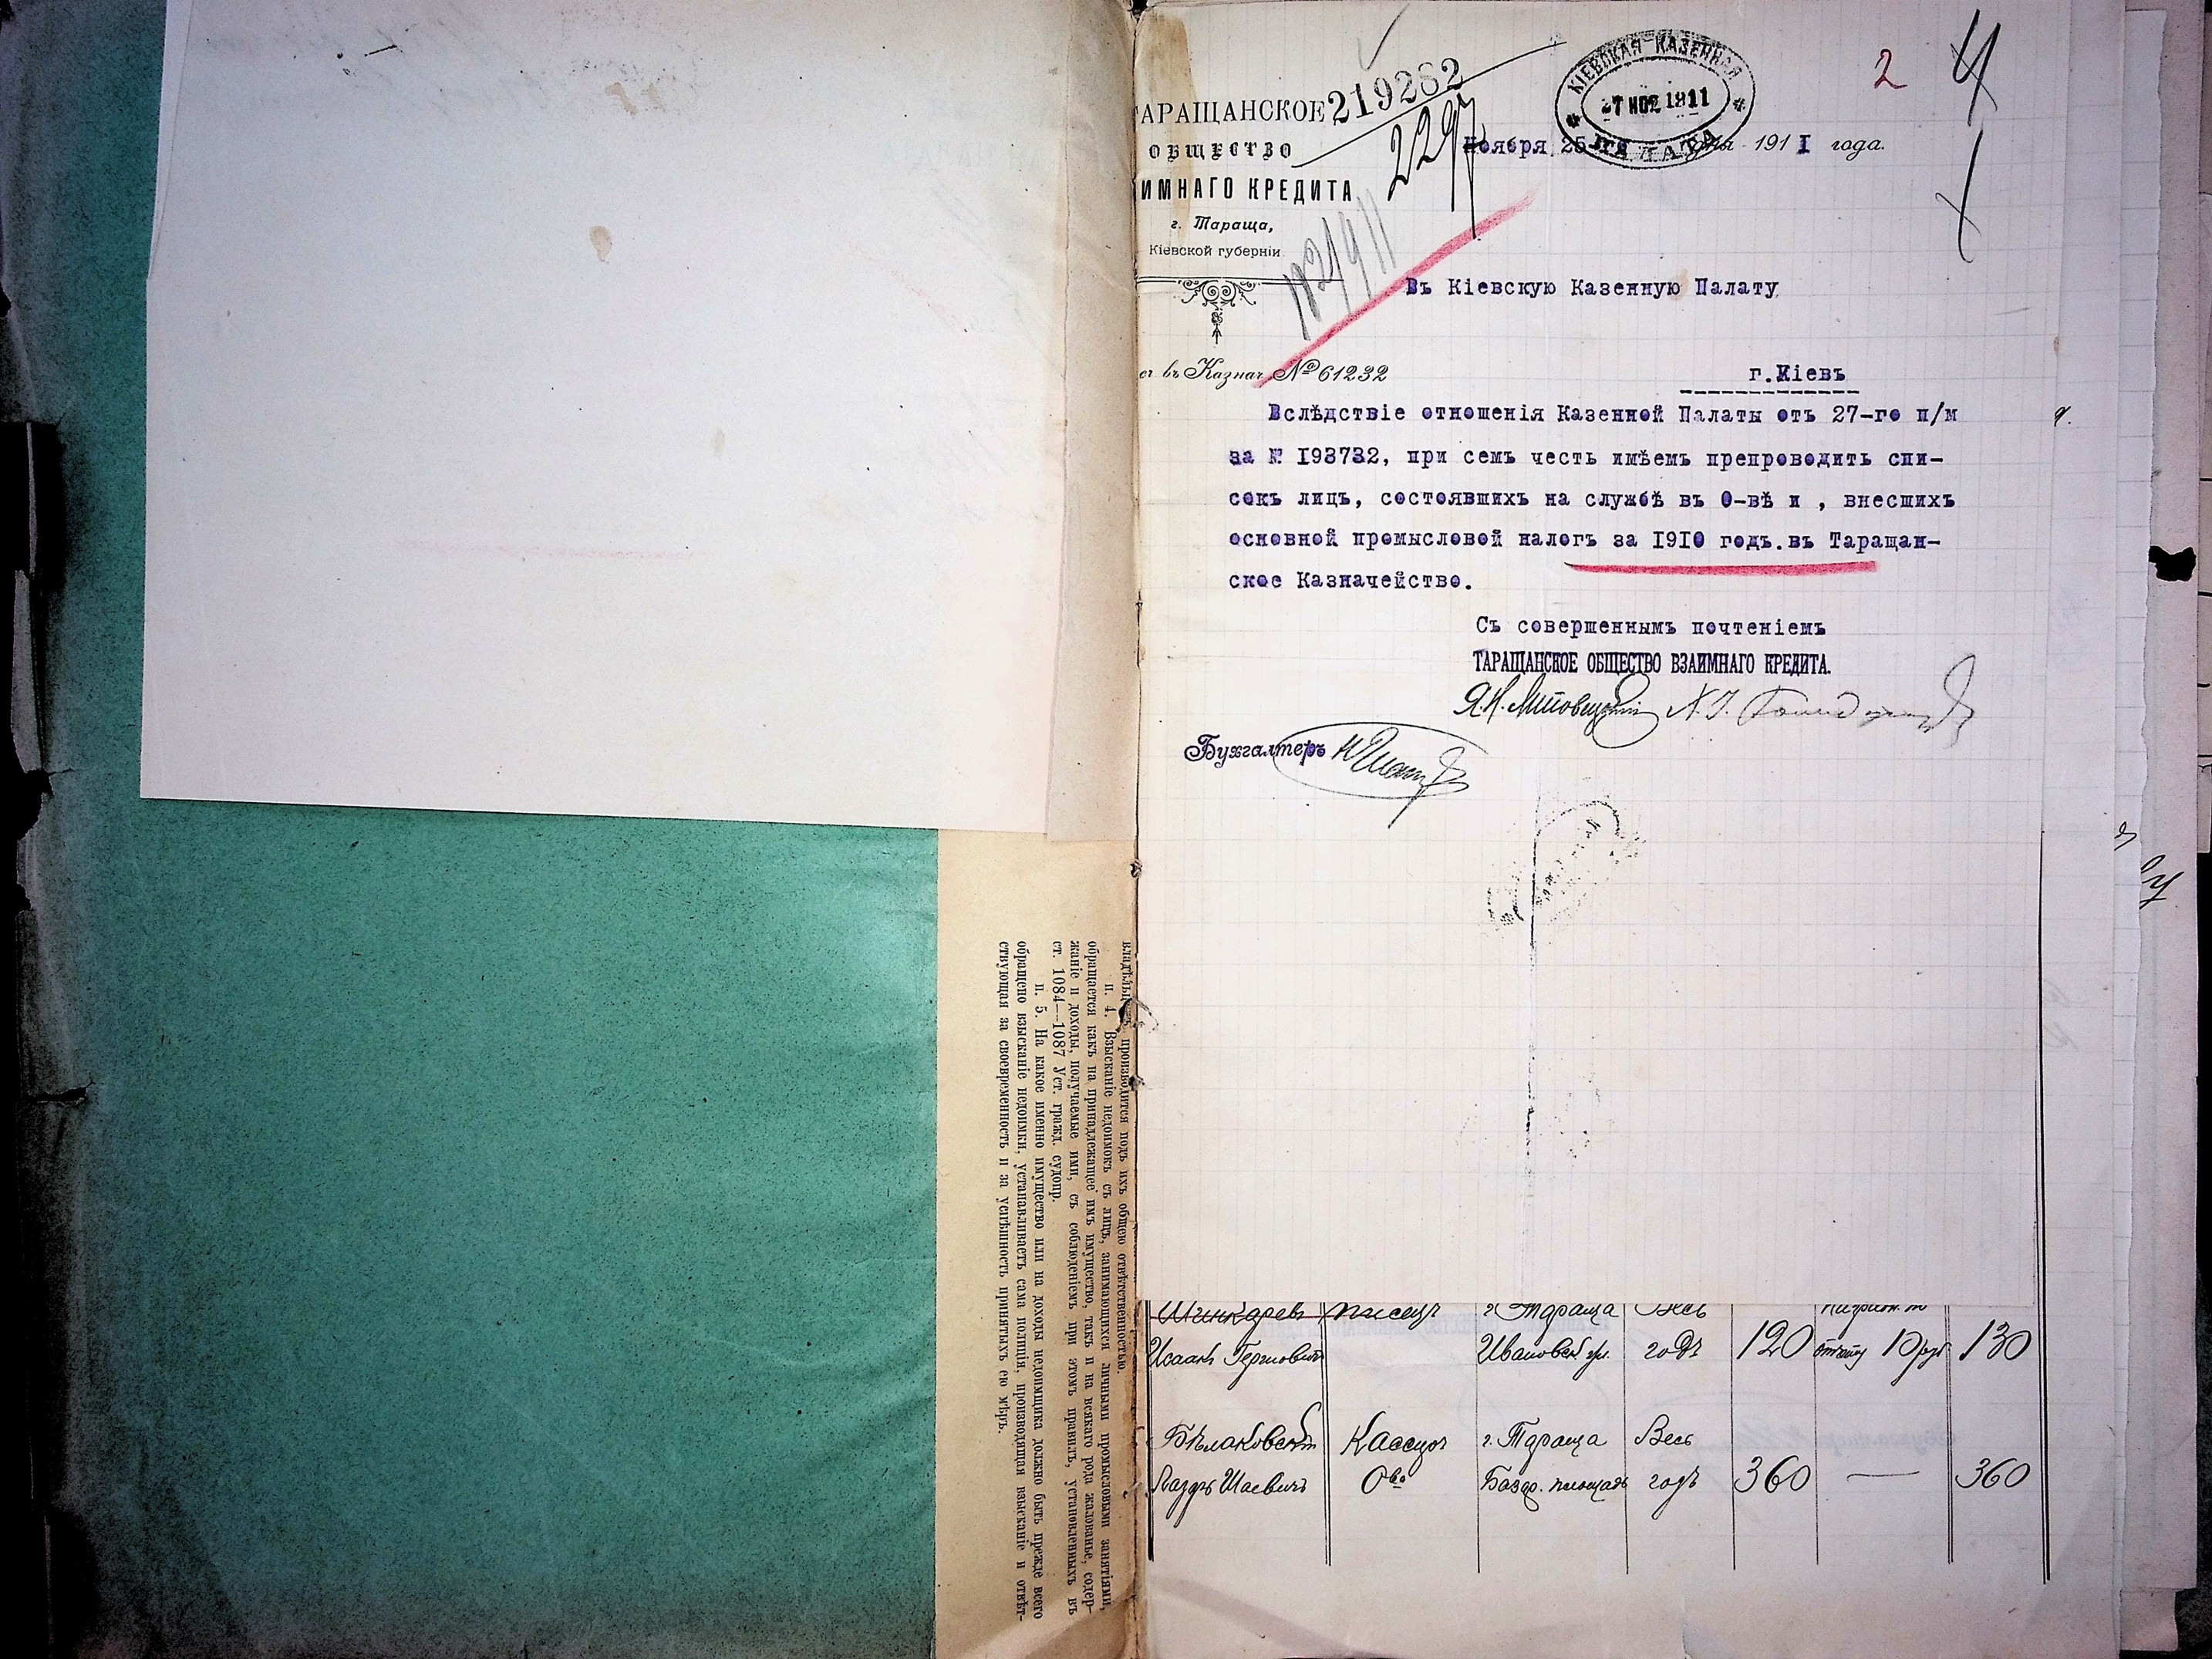 ТАРАЩАНСКОЕ
ОБЩЕСТВО
ИМНАГО КРЕДИТА
г. Тараща,
Кіевской губерніи
219282
2297
КІЕВСКАЯ КАЗЕННАЯ
27 НОЯ 1911
ПАЛАТА
2
Ноября 25-го дня 1911 года.
Въ Кіевскую Казенную Палату
въ Казнач № 61232
г.Кіевъ
Вслѣдствіе отношенія Казенной Палаты отъ 27-го п/м
за № 193732, при семъ честь имѣемъ препроводить спи-
сокъ лицъ, состоявшихъ на службѣ въ О-вѣ и , внесшихъ
основной промысловой налогъ за 1910 годъ.въ Таращан-
ское Казначейство.
Съ совершеннымъ почтеніемъ
ТАРАЩАНСКОЕ ОБЩЕСТВО ВЗАИМНАГО КРЕДИТА.
Бухгалтеръ
Шинкаревъ писецъ г. Тараща Весь
Исаакъ Гершовичъ Ивановск. ул. годъ 120 10 руб 130
Бѣлаковскій Кассиръ г. Тараща Весь
Лазарь Шаевичъ О-ва Базар. площадь годъ 360 — 360
производится подъ ихъ общею отвѣтственностью.
п. 4. Взысканіе недоимокъ съ лицъ, занимающихся личными промысловыми занятіями,
обращается какъ на принадлежащее имъ имущество, такъ и на всякаго рода жалованье, содер-
жаніе и доходы, получаемые ими, съ соблюденіемъ при этомъ правилъ, установленныхъ въ
ст. 1084—1087 Уст. гражд. судопр.
п. 5. На какое именно имущество или на доходы недоимщика должно быть прежде всего
обращено взысканіе недоимки, устанавливаетъ сама полиція, производящая взысканіе и отвѣт-
ствующая за своевременность и за успѣшность принятыхъ ею мѣръ.